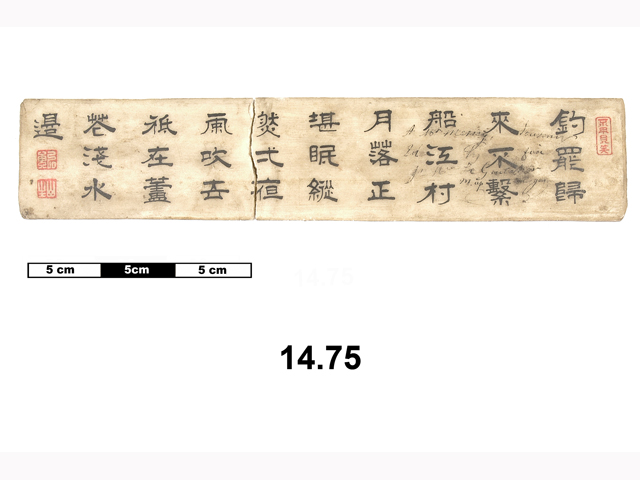 釣罷歸
來不繫
船江村
月落正
堪眠縱
然弌夜
風吹去
祇在蘆
花淺水
邊
5 cm 5cm 5 cm
14.75
14.75